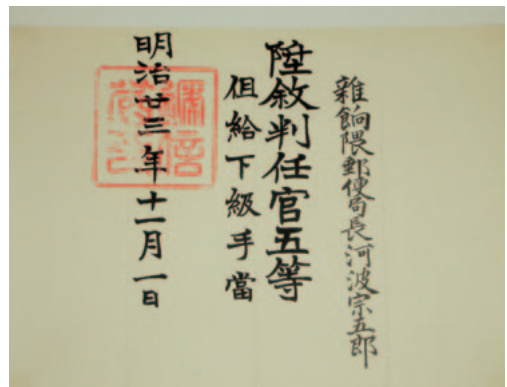 雜餉隈郵便局長河波宗五郎
陞敘判任官五等
但給下級手當
明治廿三年十一月一日